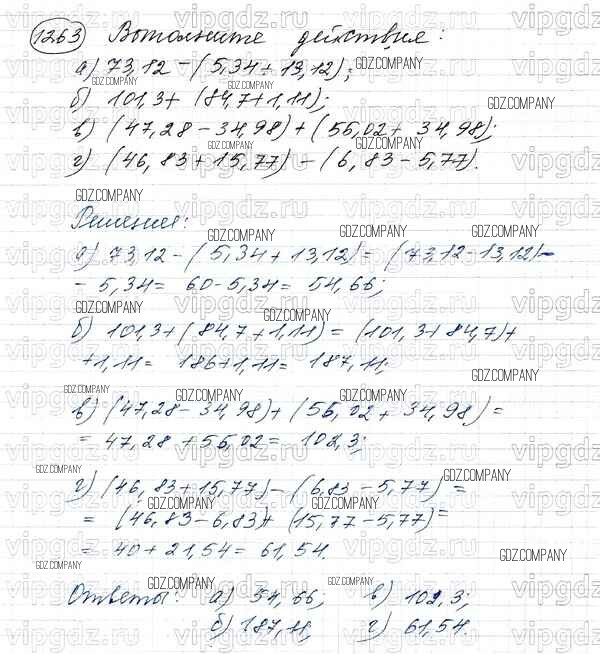 1263 Выполните действия:
а) 73,12 - (5,34 + 13,12);
б) 101,3 + (84,7 + 1,11);
в) (47,28 - 34,98) + (55,02 + 34,98);
г) (46,83 + 15,77) - (6,83 - 5,77).
Решение:
а) 73,12 - (5,34 + 13,12) = (73,12 - 13,12) -
- 5,34 = 60 - 5,34 = 54,66;
б) 101,3 + (84,7 + 1,11) = (101,3 + 84,7) +
+ 1,11 = 186 + 1,11 = 187,11;
в) (47,28 - 34,98) + (55,02 + 34,98) =
= 47,28 + 55,02 = 102,3;
г) (46,83 + 15,77) - (6,83 - 5,77) =
= (46,83 - 6,83) + (15,77 - 5,77) =
= 40 + 21,54 = 61,54.
Ответы: а) 54,66; в) 102,3;
б) 187,11; г) 61,54.
GDZ.COMPANY
vipgdz.ru